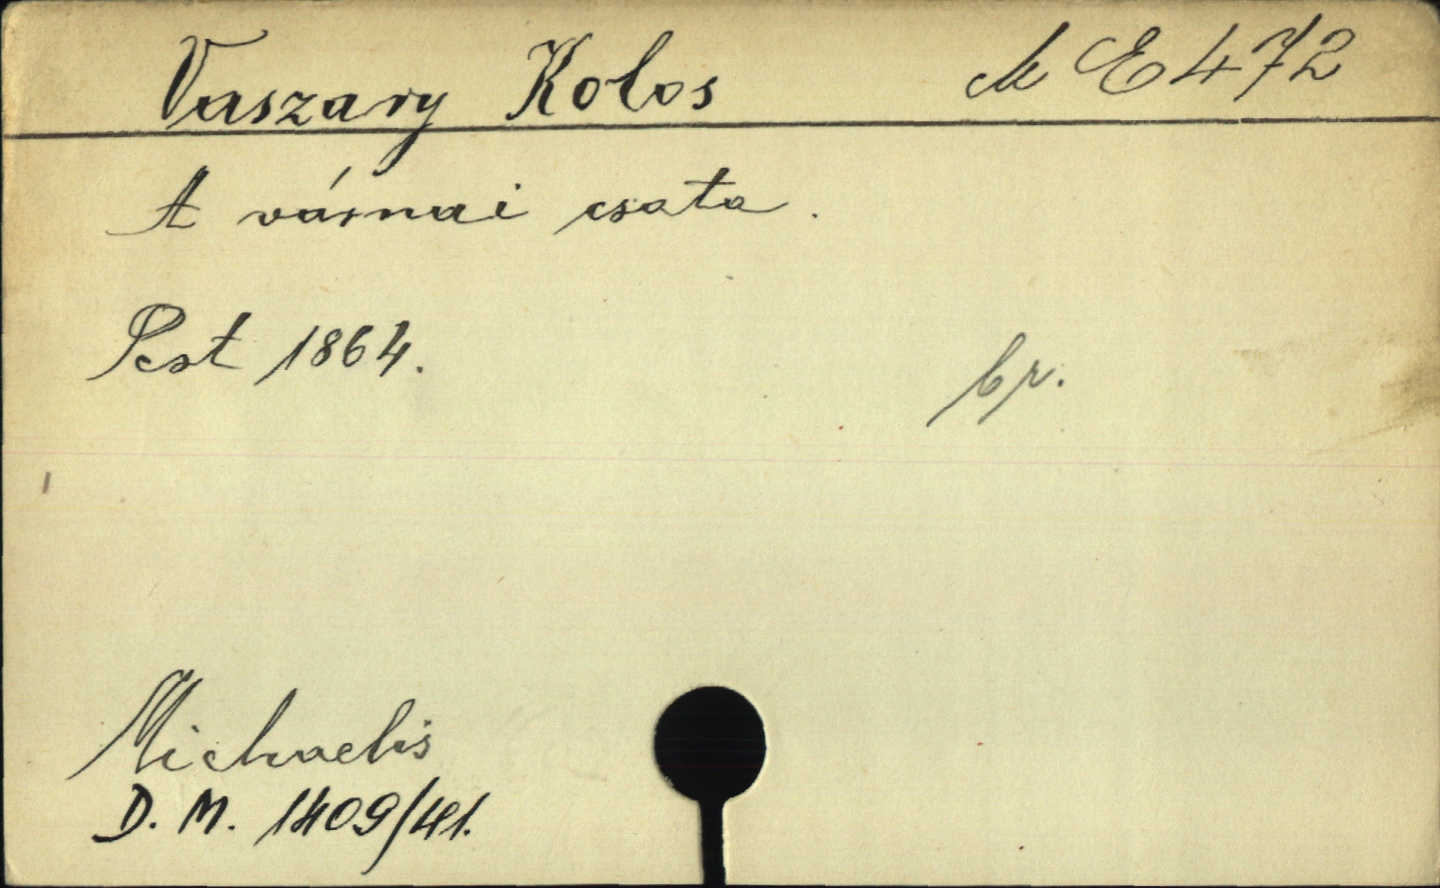 Vaszary Kolos M E 472
A várnai csata.
Pest 1864.
br.
Michaelis
D. M. 1409/41.